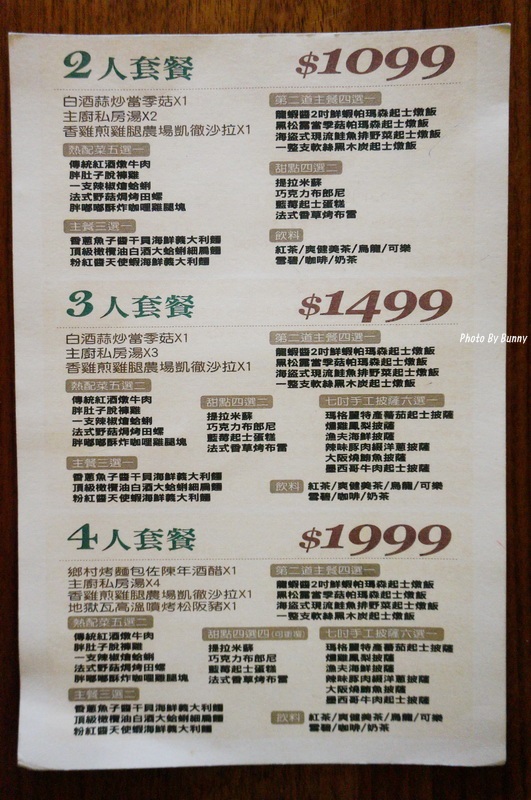 2人套餐 $1099
白酒蒜炒當季菇X1
主廚私房湯X2
香雞煎雞腿農場凱徹沙拉X1
熱配菜五選一
傳統紅酒燉牛肉
胖肚子脫褲雞
一支辣椒燴蛤蜊
法式野菇焗烤田螺
胖嘟嘟酥炸咖哩雞塊
主餐三選一
香蔥魚子醬干貝海鮮義大利麵
頂級橄欖油白酒大蛤蜊細扁麵
粉紅醬天使蝦海鮮義大利麵
第二道主餐四選一
龍蝦醬2吋鮮蝦帕瑪森起士燉飯
黑松露當季菇帕瑪森起士燉飯
海盜式現流鮭魚排野菜起士燉飯
一整支軟絲黑木炭起士燉飯
甜點四選二
提拉米蘇
巧克力布郎尼
藍莓起士蛋糕
法式香草烤布蕾
飲料
紅茶/爽健美茶/烏龍/可樂
雪碧/咖啡/奶茶
3人套餐 $1499
白酒蒜炒當季菇X1
主廚私房湯X3
香雞煎雞腿農場凱徹沙拉X1
第二道主餐四選一
龍蝦醬2吋鮮蝦帕瑪森起士燉飯
黑松露當季菇帕瑪森起士燉飯
海盜式現流鮭魚排野菜起士燉飯
一整支軟絲黑木炭起士燉飯
熱配菜五選二
傳統紅酒燉牛肉
胖肚子脫褲雞
一支辣椒燴蛤蜊
法式野菇焗烤田螺
胖嘟嘟酥炸咖哩雞塊
甜點四選二
提拉米蘇
巧克力布郎尼
藍莓起士蛋糕
法式香草烤布蕾
七吋手工披薩六選一
瑪格麗特產蕃茄起士披薩
燻雞鳳梨披薩
漁夫海鮮披薩
辣味豚肉綴洋蔥披薩
大阪燒鮪魚披薩
墨西哥牛肉起士披薩
主餐三選一
香蔥魚子醬干貝海鮮義大利麵
頂級橄欖油白酒大蛤蜊細扁麵
粉紅醬天使蝦海鮮義大利麵
飲料
紅茶/爽健美茶/烏龍/可樂
雪碧/咖啡/奶茶
4人套餐 $1999
鄉村烤麵包佐陳年酒醋X1
主廚私房湯X4
香雞煎雞腿農場凱徹沙拉X1
地獄瓦高溫噴烤松阪豬X1
第二道主餐四選一
龍蝦醬2吋鮮蝦帕瑪森起士燉飯
黑松露當季菇帕瑪森起士燉飯
海盜式現流鮭魚排野菜起士燉飯
一整支軟絲黑木炭起士燉飯
熱配菜五選二
傳統紅酒燉牛肉
胖肚子脫褲雞
一支辣椒燴蛤蜊
法式野菇焗烤田螺
胖嘟嘟酥炸咖哩雞塊
甜點四選四
提拉米蘇
巧克力布郎尼
藍莓起士蛋糕
法式香草烤布蕾
七吋手工披薩六選一
瑪格麗特產蕃茄起士披薩
燻雞鳳梨披薩
漁夫海鮮披薩
辣味豚肉綴洋蔥披薩
大阪燒鮪魚披薩
墨西哥牛肉起士披薩
主餐三選二
香蔥魚子醬干貝海鮮義大利麵
頂級橄欖油白酒大蛤蜊細扁麵
粉紅醬天使蝦海鮮義大利麵
飲料
紅茶/爽健美茶/烏龍/可樂
雪碧/咖啡/奶茶
Photo By Bunny